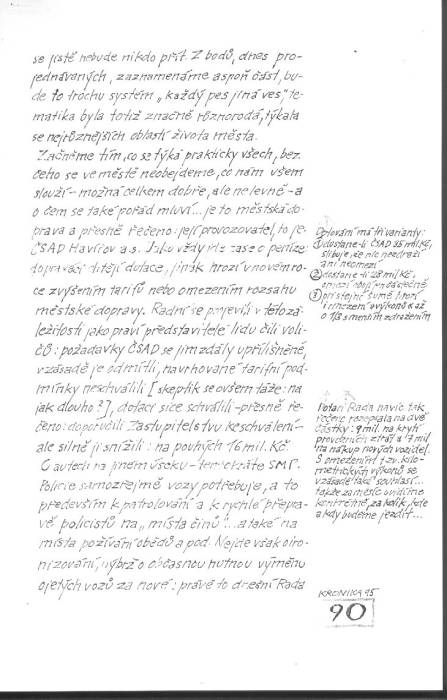 se jistě nebude nikdo přít. Z bodů, dnes pro-
jednávaných, zaznamenáme aspoň část, bu-
de to trochu systém „každý pes jiná ves", te-
matika byla totiž značně různorodá, týkala
se nejrůznějších oblastí života města.
Začněme tím, co se týká prakticky všech, bez
čeho se ve městě neobejdeme, co nám všem
slouží – možná celkem dobře, ale nelevně – a
o čem se také pořád mluví... je to městská do-
prava a přesně řečeno: její provozovatel, to je
ČSAD Havířov a.s. Jako vždy jde zase o peníze:
dopraváci chtějí dotace, jinak hrozí v novém ro-
ce zvýšením tarifů nebo omezením rozsahu
městské dopravy. Radní se projevili v této zá-
ležitosti jako praví představitelé lidu čili voli-
čů: požadavky ČSAD se jim zdály upřílišněné,
v zásadě je odmítli, navrhované tarifní pod-
mínky neschválili [skeptik se ovšem táže: na
jak dlouho?], dotaci sice schválili – přesně ře-
čeno: doporučili Zastupitelstvu ke schválení –
ale silně ji snížili: na pouhých 16 mil. Kč.
O autech na jiném úseku – tentokráte SMP.
Policie samozřejmě vozy potřebuje, a to
především k patrolování a k rychlé přepra-
vě policistů na „místa činů"... a také na
místa požívání obědů a pod. Nejde však o iro-
nizování, nýbrž o občasnou nutnou výměnu
ojetých vozů za nové: právě to dnešní Rada
Dotování má tři varianty:
① dostane-li ČSAD 35 mil Kč,
slibuje, že nic nezdraží
ani neomezí
② dostane-li 28 mil Kč,
③ při stejné sumě hrozí
i omezení výkonů a až
o 1/3 s menším zdražením
Potom Rada navíc tak
řečenc rozepsala na dvě
částky: 9 mil. na krytí
provozních ztrát a 7 mil
na nákup nových vozidel.
S omezením tzv. kilo-
metrických výkonů se
v zásadě také souhlasí...
takže za měsíc uvidíme
konkrétně, za kolik, kde
a kdy budeme jezdit...
KRONIKA 95
90